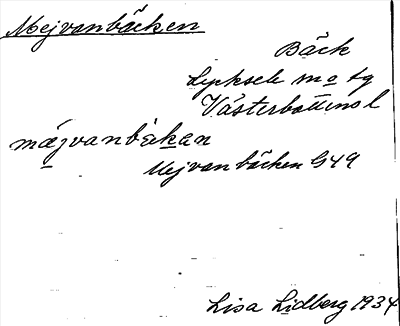 Mejvanbäcken
Bäck
Lycksele m o tg
Västerbottens l
mäjvanbäkan
Mejvanbäcken G49
Lisa Lidberg 1934